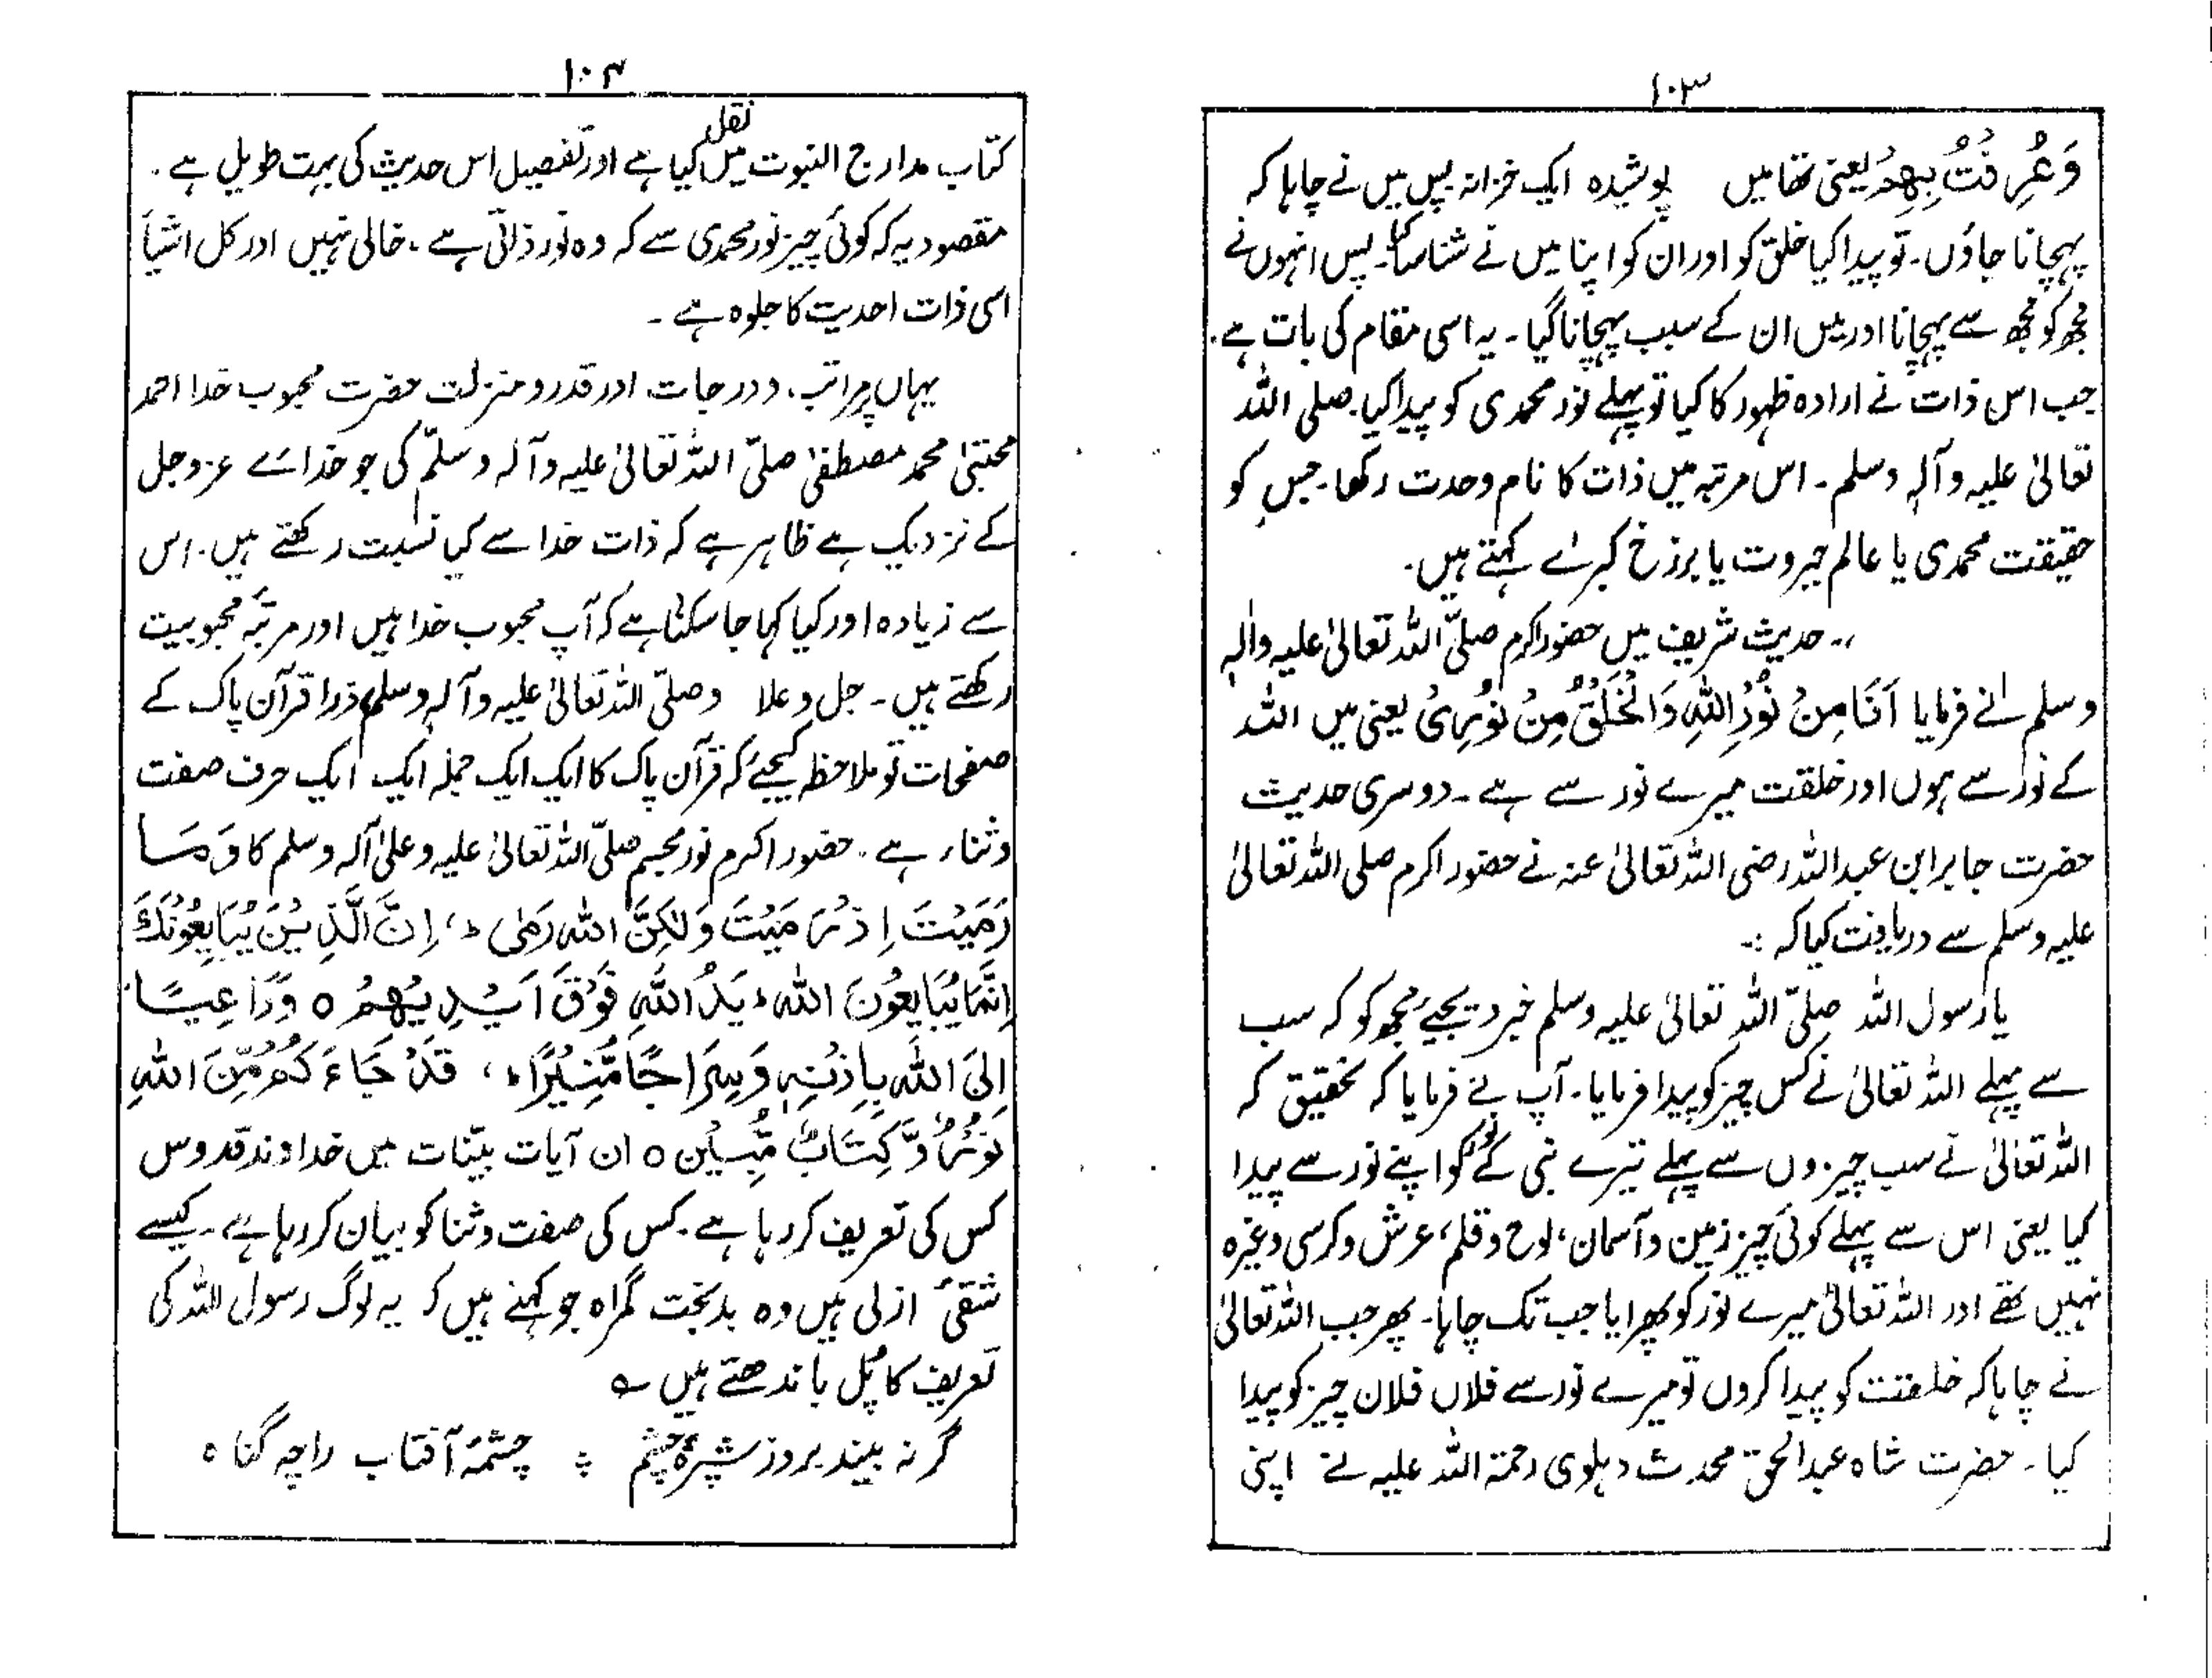 ۱۰۳
وَعُرِفْتُ بِهِمْ یعنی تھا میں پوشیدہ ایک خزانہ پس میں نے چاہا کہ
پہچانا جاؤں۔ تو پیدا کیا خلق کو اور ان کو اپنا میں نے شناسا کیا۔ پس انہوں نے
مجھ کو مجھ سے پہچانا اور میں ان کے سبب پہچانا گیا۔ یہ اسی مقام کی بات ہے۔
جب اس ذات نے ارادہ ظہور کا کیا تو پہلے نور محمدی کو پیدا کیا۔ صلی اللہ
تعالیٰ علیہ وآلہٖ وسلم۔ اس مرتبہ میں ذات کا نام وحدت رکھا۔ جس کو
حقیقت محمدی یا عالم جبروت یا برزخ کبرےٰ کہتے ہیں۔
حدیث شریف میں حضور اکرم صلّی اللہ تعالیٰ علیہ وآلہٖ
وسلم نے فرمایا اَنَا مِنْ نُوْرِ اللّٰهِ وَالْخَلْقُ مِنْ نُوْرِیْ یعنی میں اللہ
کے نور سے ہوں اور خلقت میرے نور سے ہے۔ دوسری حدیث
حضرت جابر ابن عبداللہ رضی اللہ تعالیٰ عنہ نے حضور اکرم صلی اللہ تعالیٰ
علیہ وسلم سے دریافت کیا کہ :-
یا رسول اللہ صلّی اللہ تعالیٰ علیہ وسلم خبر دیجیئے مجھ کو کہ سب
سے پہلے اللہ تعالیٰ نے کس چیز کو پیدا فرمایا۔ آپ نے فرمایا کہ تحقیق کہ
اللہ تعالیٰ نے سب چیزوں سے پہلے تیرے نبی کے نور کو اپنے نور سے پیدا
کیا یعنی اس سے پہلے کوئی چیز زمین و آسمان، لوح و قلم، عرش و کرسی وغیرہ
نہیں تھے اور اللہ تعالیٰ میرے نور کو پھرایا جب تک چاہا۔ پھر جب اللہ تعالیٰ
نے چاہا کہ خلقت کو پیدا کروں تو میرے نور سے فلاں فلاں چیز کو پیدا
کیا۔ حضرت شاہ عبدالحق محدث دہلوی رحمۃ اللہ علیہ نے اپنی
۱۰۴
کتاب مدارج النبوت میں نقل کیا ہے اور تفصیل اس حدیث کی بہت طویل ہے۔
مقصود یہ کہ کوئی چیز نور محمدی سے کہ وہ نور ذاتی ہے۔ خالی نہیں اور کل اشیأ
اسی ذات احدیت کا جلوہ ہے۔
یہاں پر مراتب، و درجات اور قدر و منزلت حضرت محبوب خدا احمد
مجتبیٰ محمد مصطفیٰ صلّی اللہ تعالیٰ علیہ وآلہ وسلّم کی جو خدائے عزوجل
کے نزدیک ہے ظاہر ہے کہ ذات خدا سے کیا نسبت رکھتے ہیں۔ اس
سے زیادہ اور کیا کہا جا سکتا ہے کہ آپ محبوب خدا ہیں اور مرتبۂ محبوبیت
رکھتے ہیں۔ جل وعلا وصلّی اللہ تعالیٰ علیہ وآلہٖ وسلم ذرا قرآن پاک کے
صفحات تو ملاحظہ کیجیئے کہ قرآن پاک کا ایک ایک جملہ ایک ایک حرف صفت
وثناء ہے۔ حضور اکرم نور مجسم صلّی اللہ تعالیٰ علیہ وعلیٰ آلہ وسلم کا وَمَا
رَمَيْتَ اِذْ رَمَيْتَ وَلٰكِنَّ اللّٰهَ رَمٰی ط، اِنَّ الَّذِيْنَ يُبَايِعُوْنَكَ
اِنَّمَا يُبَايِعُوْنَ اللّٰهَ ط يَدُ اللّٰهِ فَوْقَ اَيْدِيْهِمْ ہ وَدَاعِيًا
اِلَی اللّٰهِ بِاِذْنِهٖ وَسِرَاجًا مُّنِيْرًا ط، قَدْ جَاءَكُمْ مِّنَ اللّٰهِ
نُوْرٌ وَّ كِتَابٌ مُّبِيْن ہ ان آیات بیّنات میں خداوند قدوس
کس کی تعریف کر رہا ہے۔ کس کی صفت وثنا کو بیان کر رہا ہے۔ کیسے
شقیٔ ازلی ہیں وہ بدبخت گمراہ جو کہتے ہیں کہ یہ لوگ رسول اللہ کی
تعریف کا پل باندھتے ہیں ؎
گر نہ بیند بروز شپرۂ چشم ؛ چشمۂ آفتاب راچہ گناہ